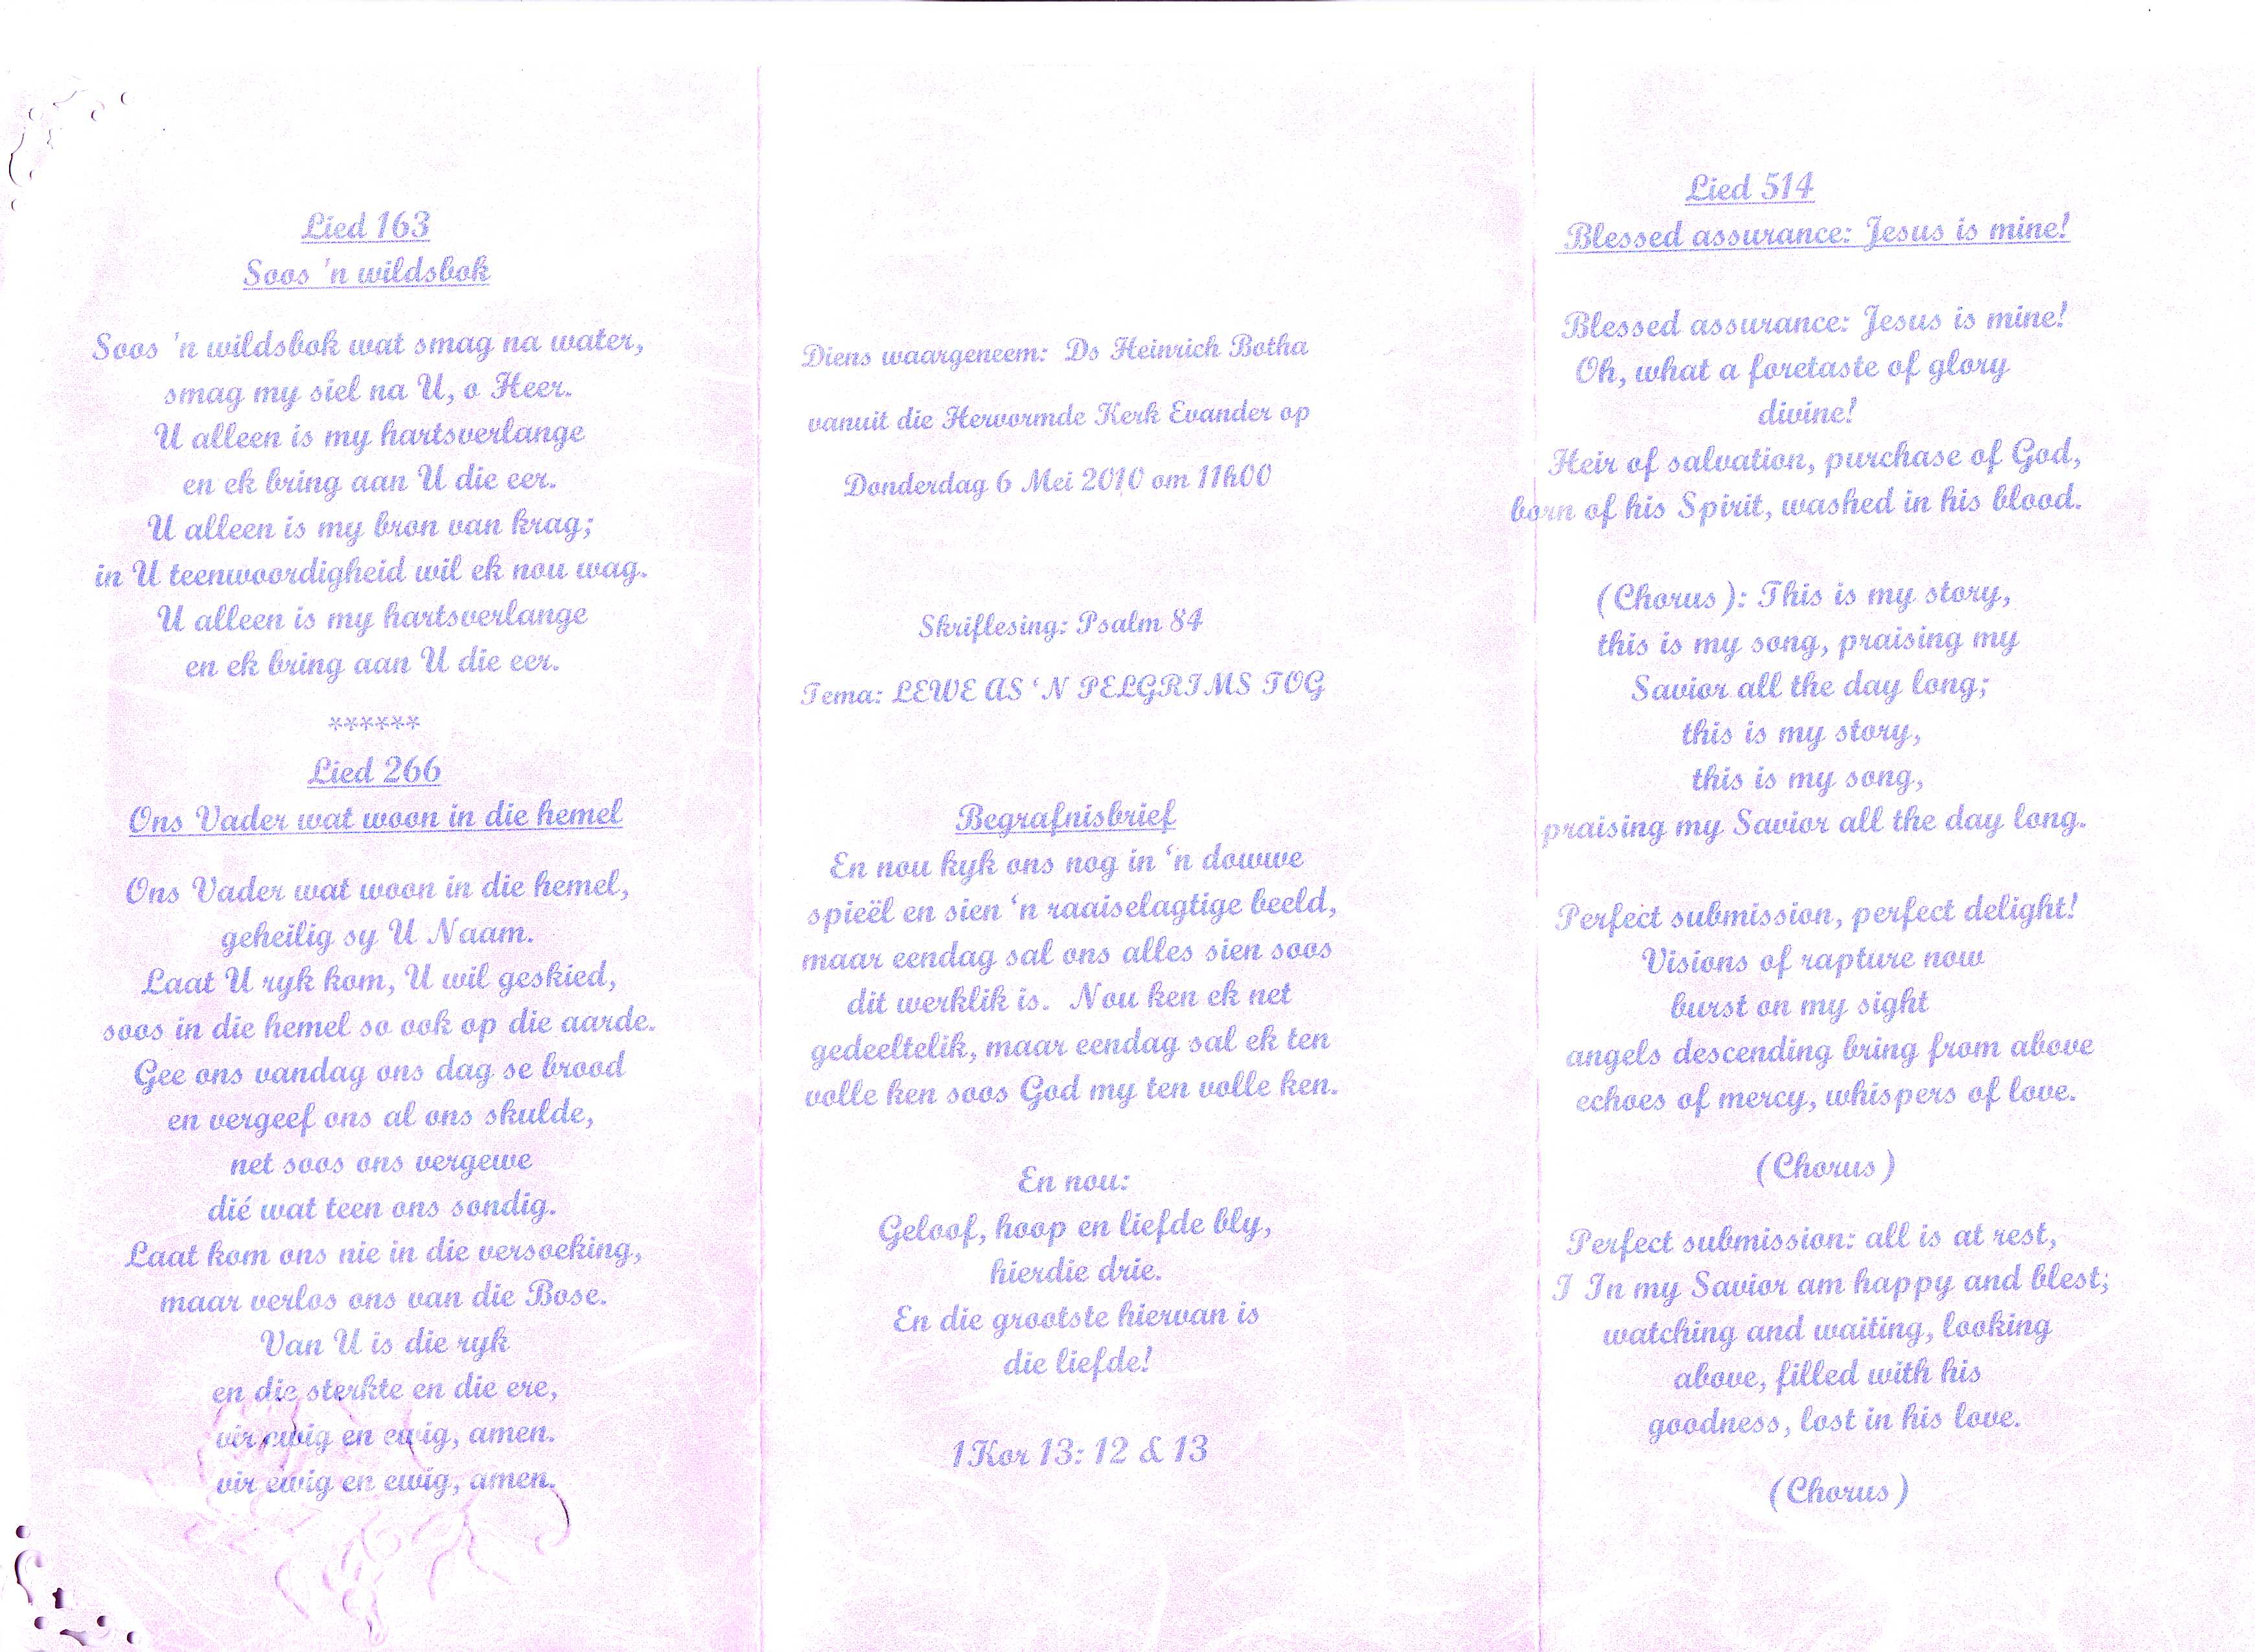 Lied 163
Soos 'n wildsbok
Soos 'n wildsbok wat smag na water,
smag my siel na U, o Heer.
U alleen is my hartsverlange
en ek bring aan U die eer.
U alleen is my bron van krag;
in U teenwoordigheid wil ek nou wag.
U alleen is my hartsverlange
en ek bring aan U die eer.
******
Lied 266
Ons Vader wat woon in die hemel
Ons Vader wat woon in die hemel,
geheilig sy U Naam.
Laat U ryk kom, U wil geskied,
soos in die hemel so ook op die aarde.
Gee ons vandag ons dag se brood
en vergeef ons al ons skulde,
net soos ons vergewe
dié wat teen ons sondig.
Laat kom ons nie in die versoeking,
maar verlos ons van die Bose.
Van U is die ryk
en die sterkte en die ere,
vir ewig en ewig, amen.
vir ewig en ewig, amen.
Diens waargeneem: Ds Heinrich Botha
vanuit die Hervormde Kerk Evander op
Donderdag 6 Mei 2010 om 11h00
Skriflesing: Psalm 84
Tema: LEWE AS 'N PELGRIMS TOG
Begrafnisbrief
En nou kyk ons nog in 'n dowwe
spieël en sien 'n raaiselagtige beeld,
maar eendag sal ons alles sien soos
dit werklik is. Nou ken ek net
gedeeltelik, maar eendag sal ek ten
volle ken soos God my ten volle ken.
En nou:
Geloof, hoop en liefde bly,
hierdie drie.
En die grootste hiervan is
die liefde!
1Kor 13: 12 & 13
Lied 514
Blessed assurance: Jesus is mine!
Blessed assurance: Jesus is mine!
Oh, what a foretaste of glory
divine!
Heir of salvation, purchase of God,
born of his Spirit, washed in his blood.
(Chorus): This is my story,
this is my song, praising my
Savior all the day long;
this is my story,
this is my song,
praising my Savior all the day long.
Perfect submission, perfect delight!
Visions of rapture now
burst on my sight
angels descending bring from above
echoes of mercy, whispers of love.
(Chorus)
Perfect submission: all is at rest,
I In my Savior am happy and blest;
watching and waiting, looking
above, filled with his
goodness, lost in his love.
(Chorus)